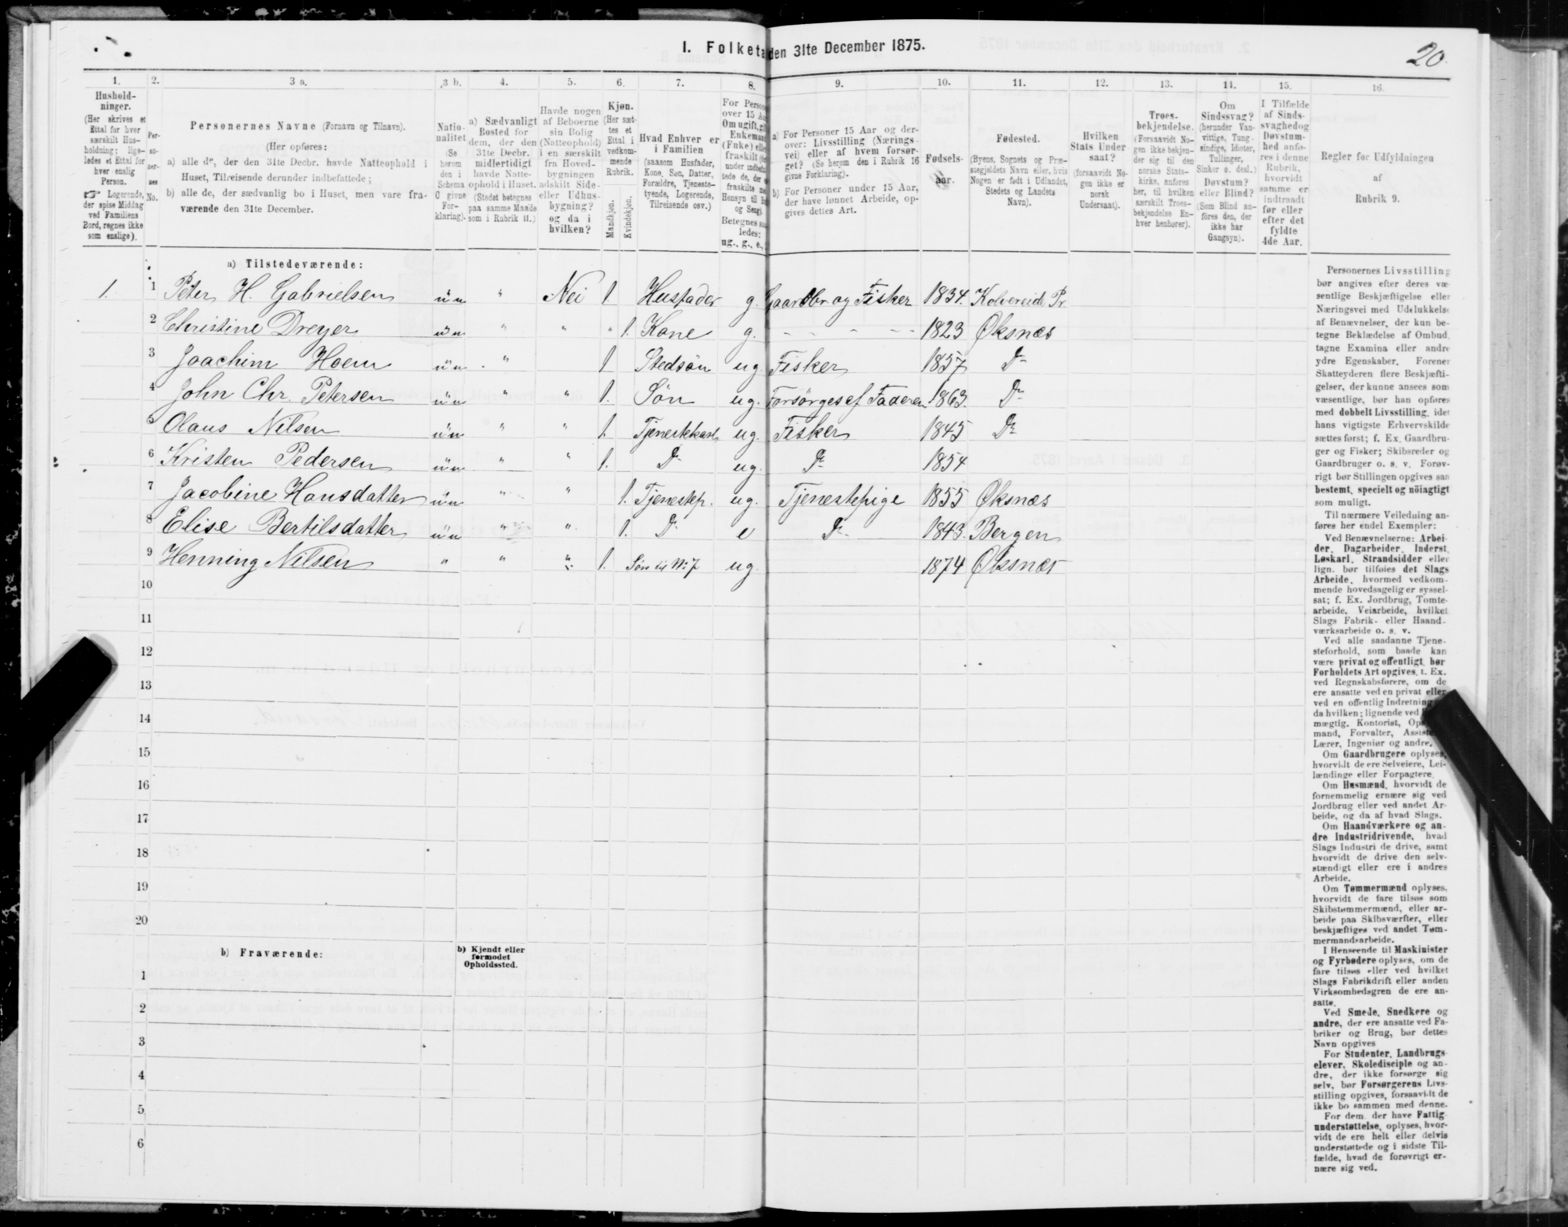 20
1. Folketæ den 31te December 1875.
1. 2. 3 a. 3 b. 4. 5. 6. 7. 8. 9. 10. 11. 12. 13. 14. 15. 16.
Hushold-
ninger.
(Her skrives et
Ettal for hver
særskilt Hus-
holdning; lige-
ledes et Ettal for
hver enslig
Person.
☞ Logerende,
der spise Middag
ved Familiens
Bord, regnes ikke
som enslige).
Per-
so-
ner-
nes
No.
Personernes Navne (Fornavn og Tilnavn).
(Her opføres:
a) alle de, der den 31te Decbr. havde Natteophold i
Huset, Tilreisende derunder indbefattede;
b) alle de, der sædvanlig bo i Huset, men vare fra-
værende den 31te December.
Natio-
nalitet
(Se
herom
den i
Schema
C givne
For-
klaring).
a) Sædvanligt
Bosted for
dem, der den
31te Decbr.
midlertidigt
havde Natte-
ophold i Huset.
(Stedet betegnes
paa samme Maade
som i Rubrik 11.)
Havde nogen
af Beboerne
sin Bolig
(Natteophold)
i en særskilt
fra Hoved-
bygningen
adskilt Side-
eller Udhus-
bygning?
og da i
hvilken?
Kjøn.
(Her sæt-
tes et
Ettal i
vedkom-
mende
Rubrik.
Mandkjøn.
Kvindekjøn.
Hvad Enhver er
i Familien
(saasom Husfader,
Kone, Søn, Datter,
Forældre, Tjeneste-
tyende, Logerende,
Tilreisende osv.)
For Person
over 15 Aa
Om ugift, gi
Enkeman
(Enke) elle
fraskilt
ledes:
ug., g., e.,
a) For Personer 15 Aar og der-
over: Livsstilling (Nærings-
vei) eller af hvem forsør-
get? (Se herom den i Rubrik 16
givne Forklaring).
b) For Personer under 15 Aar,
der have lønnet Arbeide, op-
gives dettes Art.
Fødsels-
aar.
Fødested.
(Byens, Sognets og Præ-
stegjeldets Navn eller, hvis
Nogen er født i Udlandet,
Stedets og Landets
Navn).
Hvilken
Stats Under
saat?
(forsaavidt No-
gen ikke er
norsk
Undersaat).
Troes-
bekjendelse.
(Forsaavidt No-
gen ikke bekjen-
der sig til den
norske Stats-
kirke, anføres
her, til hvilken
særskilt Troes-
bekjendelse En-
hver henhører).
Om
Sindssvag?
(herunder Van-
vittige, Tung-
sindige, Idioter,
Tullinger,
Sinker o. desl.)
Døvstum?
eller Blind?
(Som Blind an-
føres den, der
ikke har
Gangsyn).
I Tilfælde
af Sinds-
svaghed og
Døvstum-
hed anfø-
res i denne
Rubrik,
hvorvidt
samme er
indtraadt
før eller
efter det
fyldte
4de Aar.
Regler for Udfyldningen
af
Rubrik 9.
a) Tilstedeværende:
1. 1 Peter H. Gabrielsen n " Nei 1. Husfader g. Gaardbr og Fisker 1834. Kolvereids Pr
2 Christine Dreyer n " " " 1. Kone g. 1823 Øksnæs
3 Joachim Hoem n " 1 Stedsøn ug Fisker 1857 Do
4 John Chr. Petersen n " " 1. Søn ug. Forsørges af Faderen 1863. Do
5 Olaus Nilsen n " " 1. Tjenestekarl ug. Fisker 1845 Do
6 Kristen Pedersen n " " 1. Do ug. Do 1854
7 Jacobine Hansdatter n " " 1. Tjenestep. ug. Tjenestepige 1855 Øksnæs
8 Elise Bertilsdatter n " " 1. Do e Do 1843. Bergen
9 Henning Nilsen " " " 1. Søn til No 7 ug. 1874 Øksnæs
10
11
12
13
14
15
16
17
18
19
20
b) Fraværende:
b) Kjendt eller
formodet
Opholdssted.
1
2
3
4
5
6
Personernes Livsstilling
bør angives efter deres væ
sentlige Beskjæftigelse eller
Næringsvei med Udelukkels
af Benævnelser, der kun be-
tegne Beklædelse af Ombud,
tagne Examina eller andre
ydre Egenskaber. Forener
Skatteyderen flere Beskjæfti-
gelser, der kunne ansees som
væsentlige, bør han opføres
med dobbelt Livsstilling, idet
hans vigtigste Erhvervskilde
sættes først; f. Ex. Gaardbru-
ger og Fisker; Skibsreder og
Gaardbruger o. s. v. Forøv-
rigt bør Stillingen opgives saa
bestemt, specielt og nöiagtigt
som muligt.
Til nærmere Veiledning an-
føres her endel Exempler:
Ved Benævnelserne: Arbei-
der, Dagarbeider, Inderst,
Løskarl, Strandsidder eller
lign. bør tilføies det Slags
Arbeide, hvormed vedkom-
mende hovedsagelig er syssel-
sat; f. Ex. Jordbrug, Tomte-
arbeide, Veiarbeide, hvilket
Slags Fabrik- eller Haand-
værksarbeide o. s. v.
Ved alle saadanne Tjene-
steforhold, som baade kan
være privat og offentligt, bør
Forholdets Art opgives, t. Ex.
ved Regnskabsførere, om de
ere ansatte ved en privat eller
ved en offentlig Indretning
da hvilken; lignende ved
mægtig, Kontorist, Op
mand, Forvalter, Assiste
Lærer, Ingeniør og andre.
Om Gaardbrugere oplyses,
hvorvidt de ere Selveiere, Lei-
lændinge eller Forpagtere.
Om Husmænd, hvorvidt de
fornemmelig ernære sig ved
Jordbrug eller ved andet Ar-
beide, og da af hvad Slags.
Om Haandværkere og an-
dre Industridrivende, hvad
Slags Industri de drive, samt
hvorvidt de drive den selv-
stændigt eller ere i andres
Arbeide.
Om Tømmermænd oplyses,
hvorvidt de fare tilsøs som
Skibstømmermænd, eller ar-
beide paa Skibsværfter, eller
beskjæftiges ved andet Tøm-
mermandsarbeide.
I Henseende til Maskinister
og Fyrbødere oplyses, om de
fare tilsøs eller ved hvilket
Slags Fabrikdrift eller anden
Virksomhedsgren de ere an-
satte.
Ved Smede, Snedkere og
andre, der ere ansatte ved Fa-
briker og Brug, bør dettes
Navn opgives
For Studenter, Landbrugs
elever, Skoledisciple og an-
dre, der ikke forsørge sig
selv, bør Forsørgerens Livs-
stilling opgives, forsaavidt de
ikke bo sammen med denne.
For dem der have Fattig
understøttelse, oplyses, hvor-
vidt de ere helt eller delvis
understøttede og i sidste Til-
fælde, hvad de forøvrigt er-
nære sig ved.